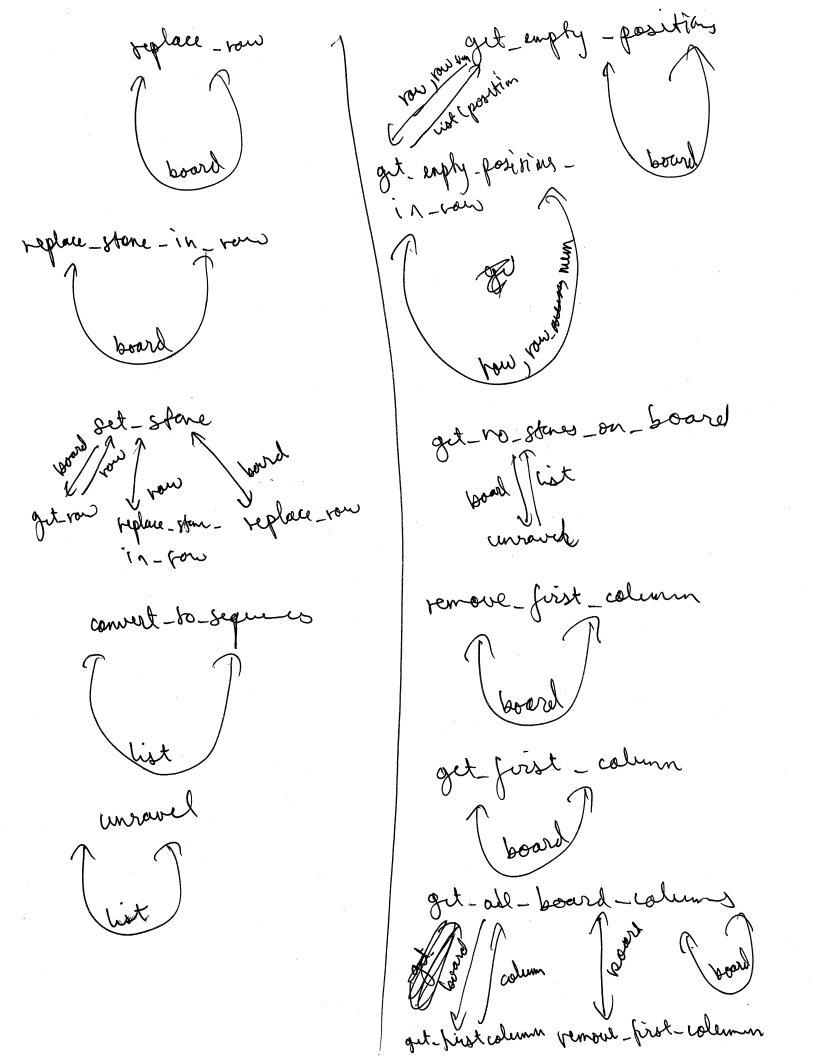 replace_row
board
replace_stone_in_row
board
set_stone
board
row
row
board
get_row
replace_stone_
in_row
replace_row
convert_to_sequences
list
unravel
list
get_empty_positions
row, row num
list(position
board
get_empty_positions_
in_row
row, row num
get_no_stones_on_board
board
list
unravel
remove_first_column
board
get_first_column
board
get_all_board_columns
board
column
board
board
get_first column
remove_first_column